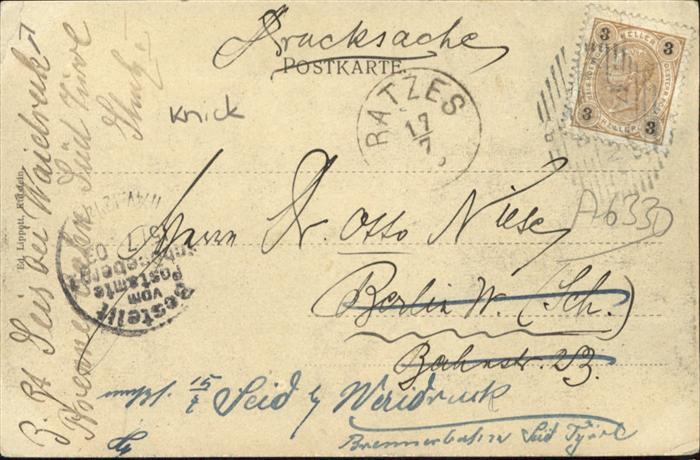 Drucksache
POSTKARTE.
3 HELLER 3
3 3
Knick
RATZES
17/7
A6330
Herrn Dr. Otto Niese
Berlin W. (Sch.)
Bahnstr. 23.
15/7 Seis b/ Waidruck
Brennerbahn Süd Tyrol
Bestellt
vom
Postamte
03
Z. Zt Seis bei Waidruck
Brennerbahn Süd Tirol
Ed. Lippott, Kufstein